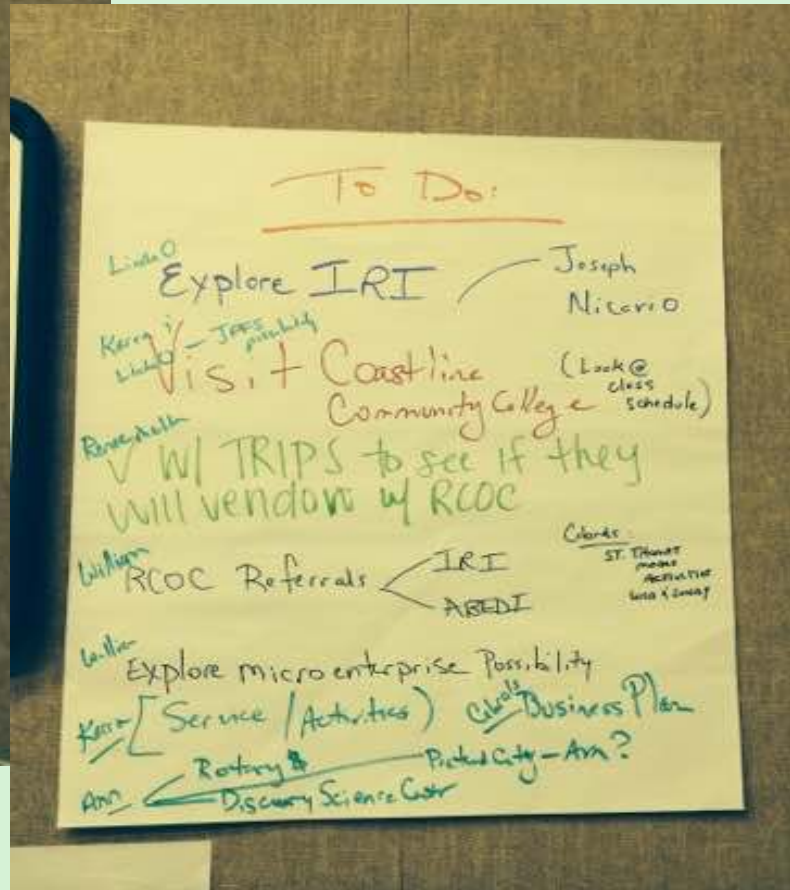 To Do:
Linda O
Explore IRI
Joseph
Nicario
Kerry
Linda O –
possibility
Visit Coastline
Community College
(Look @
class
schedule)
✓ w/ TRIPS to see if they
will vendor w/ RCOC
William
RCOC Referrals
IRI
ABEDI
ST. THOMAS
ACTIVITIES
Explore microenterprise Possibility
[Service / Activities)
Business Plan
Ann
Rotary
– Ann?
Discovery Science